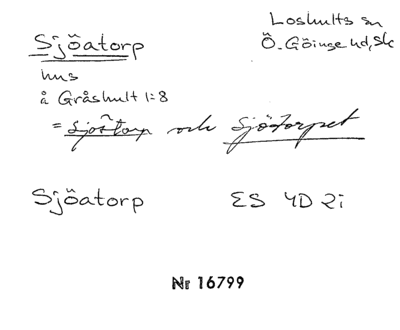 Sjöatorp
Loshults sn
Ö. Göinge hd, Sk
hus
å Gråshult 1:8
= Sjötorp och Sjötorpet
Sjöatorp
ES 4D 2i
Nr 16799